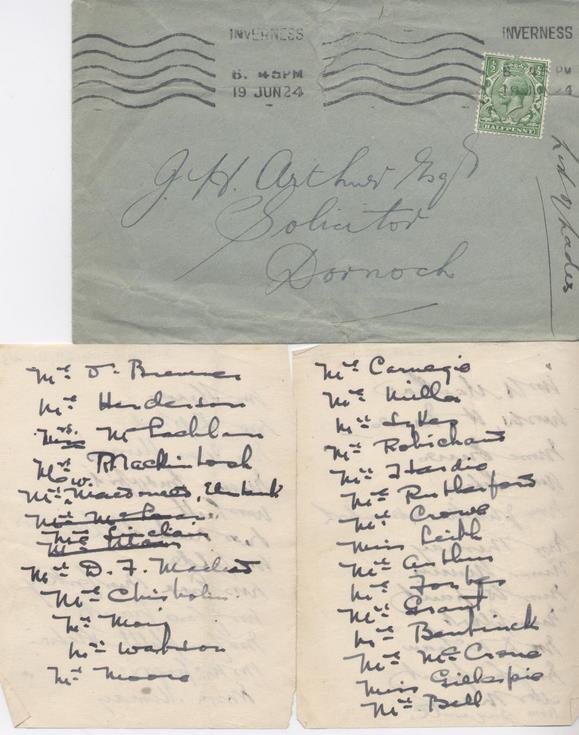 INVERNESS
6. 45PM
19 JUN 24
INVERNESS
PM
HALFPENNY
J. H. Arthur Esqr
Solicitor
Dornoch
List of Ladies
Mrs Dr Bremner
Mrs Henderson
Mrs McEachern
Mrs Mackintosh
Mrs W. Macdonald,
Mrs
Mrs Sinclair
Mrs
Mrs D. F.
Mrs Chisholm
Mrs Mair
Mrs Watson
Mrs Moore
Mrs Carnegie
Mrs Millar
Mrs
Mrs
Mrs Hardie
Mrs Rutherford
Mrs Crowe
Miss Leith
Mrs Arthur
Mrs Forbes
Mrs Grant
Mrs Bentinck
Mrs McCrone
Miss Gillespie
Mrs Bell